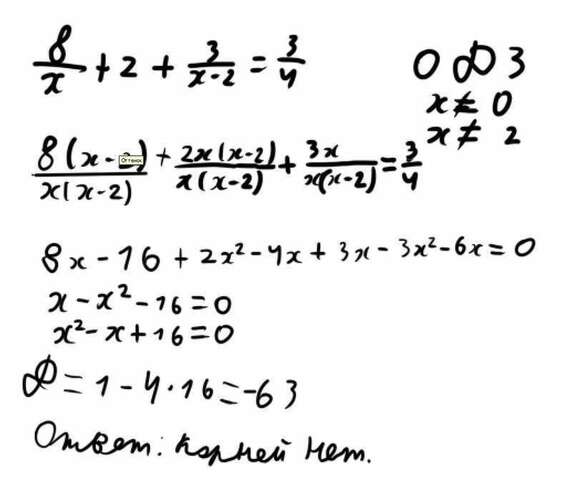 8/x + 2 + 3/(x-2) = 3/4
ОДЗ
x ≠ 0
x ≠ 2
8(x-2)/(x(x-2)) + 2x(x-2)/(x(x-2)) + 3x/(x(x-2)) = 3/4
8x - 16 + 2x² - 4x + 3x - 3x² - 6x = 0
x - x² - 16 = 0
x² - x + 16 = 0
D = 1 - 4·16 = -63
Ответ: корней нет.